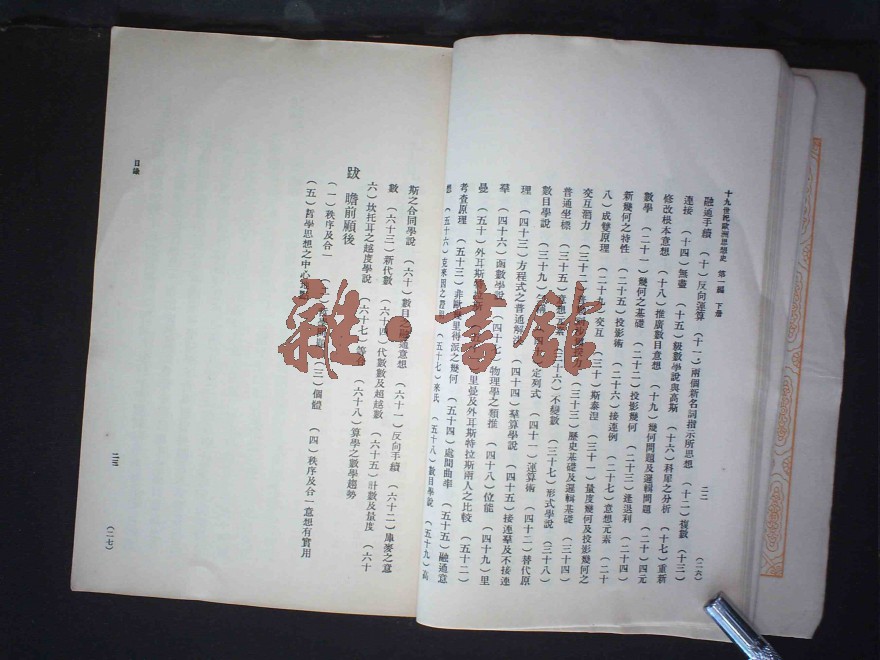 十九世紀歐洲思想史 第一編 下冊
二二
(二六)
融通手續 (十)反向運算 (十一)兩個新名詞指示所思想 (十二)複數 (十三)
連接 (十四)無盡 (十五)級數學說與高斯 (十六)科犀之分析 (十七)重新
修改根本意想 (十八)推廣數目意想 (十九)幾何問題及邏輯問題 (二十)四元
數學 (二十一)幾何之基礎 (二十二)投影幾何 (二十三)逢退利 (二十四)
新幾何之特性 (二十五)投影術 (二十六)接連例 (二十七)意想元素 (二十
八)成雙原理 (二十九)交互 (三十)斯泰涅 (三十一)量度幾何及投影幾何之
交互潛力 (三十三)歷史基礎及邏輯基礎 (三十四)
普通坐標 (三十五)意想元素 (三十六)不變數 (三十七)形式學說 (三十八)
數目學說 (三十九) 定列式 (四十一)運算術 (四十二)替代原
理 (四十三)方程式之普通解決 (四十四)羣算學說 (四十五)接連羣及不接連
羣 (四十六)函數學說 (四十七)物理學之類推 (四十八)位能 (四十九)里
曼 (五十)外耳斯特拉斯 里曼及外耳斯特拉斯兩人之比較 (五十二)
考查原理 (五十三)非歐几里得派之幾何 (五十四)處間曲率 (五十五)融通意
想 (五十六)克來因 (五十七)來氏 (五十八)數目學說 (五十九)高
斯之合同學說 (六十)數目之融通意想 (六十一)反向手續 (六十二)庫麥之意
數 (六十三)新代數 (六十四)代數數及超越數 (六十五)計數及量度 (六十
六)坎托耳之越度學說 (六十七)等 (六十八)算學之數學趨勢
跋 瞻前顧後
(一)秩序及合一 (三)個體 (四)秩序及合一意想有實用
(五)哲學思想之中心
目錄
二三
(二七)
雜·書館